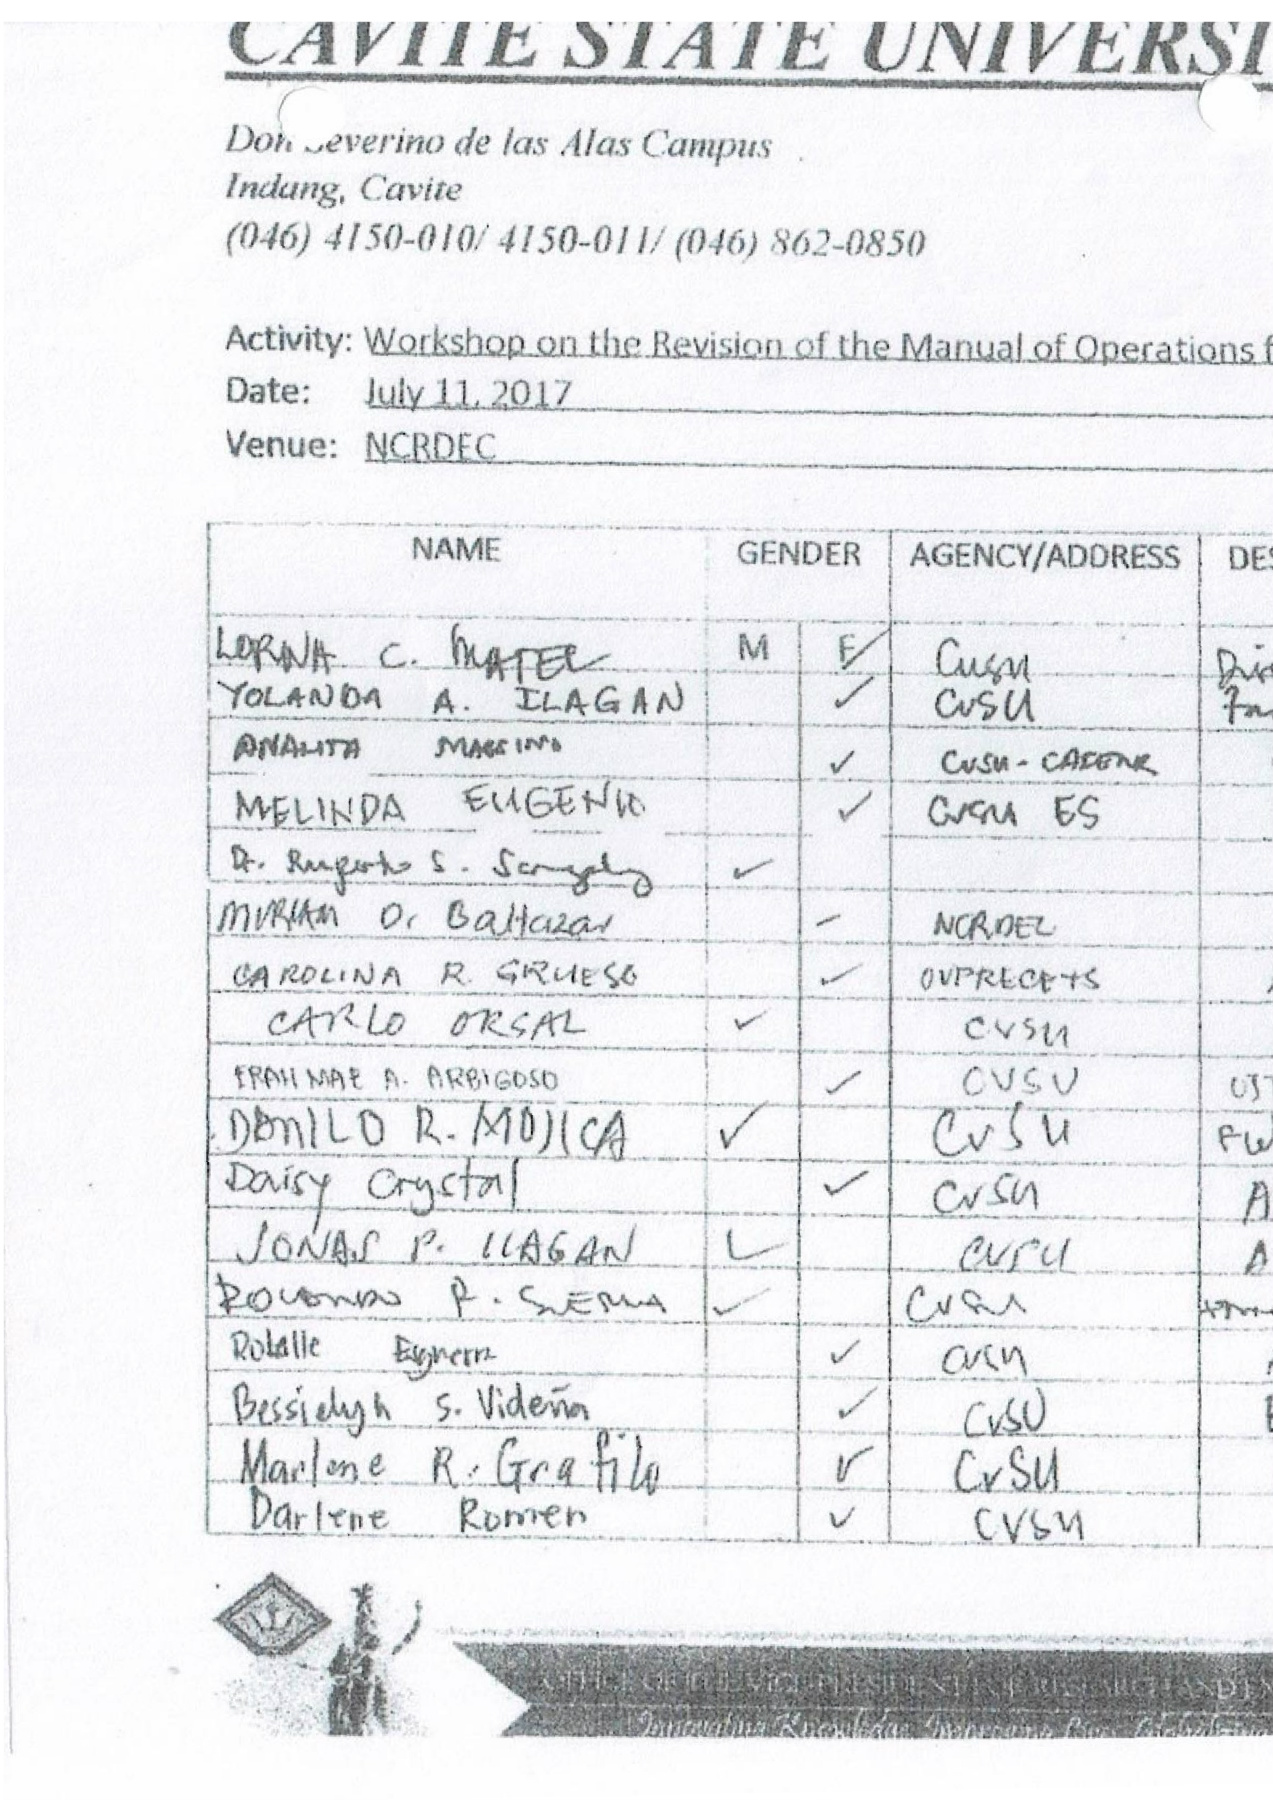 CAVITE STATE UNIVERSI
Don Severino de las Alas Campus
Indang, Cavite
(046) 4150-010/ 4150-011/ (046) 862-0850
Activity: Workshop on the Revision of the Manual of Operations f
Date: July 11, 2017
Venue: NCRDEC
NAME GENDER AGENCY/ADDRESS DES
LORNA C. MATEL M F CvSU
YOLANDA A. ILAGAN CvSU
ANALITA MAGSINO CvSU-
MELINDA EUGENIO CvSU ES
Dr. S.
MIRIAM D. Baltazar NCRDEC
CAROLINA R. GRUESO OVPRECETS
CARLO ORSAL CVSU
ERAH MAE A. ARBIGOSO CVSU
DANILO R. MOJICA CvSU
Daisy Crystal CvSU A
JONAS P. ILAGAN CVSU A
ROLANDO P. CvSU
CvSU
Bessielyn S. Videña CvSU
Marlene R. Grafilo CvSU
Darlene Romen CVSU
OFFICE OF THE VICE PRESIDENT RESEARCH AND EX
Innovating Knowledge, Improving